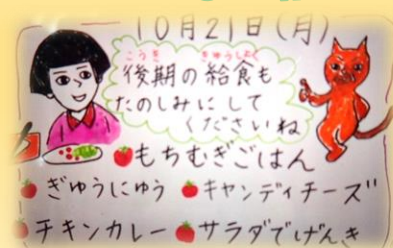 10月21日(月)
こうき きゅうしょく
後期の給食も
たのしみにして
くださいね
もちむぎごはん
ぎゅうにゅう キャンディチーズ
チキンカレー サラダでげんき